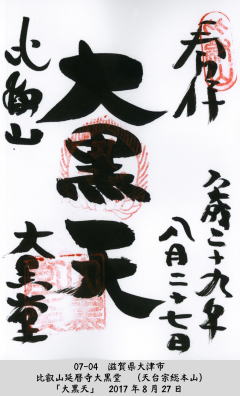 奉拝
平成二十九年
八月二十七日
大黒天
比叡山
大黒堂
07-04 滋賀県大津市
比叡山延暦寺大黒堂 (天台宗総本山)
「大黒天」 2017年8月27日